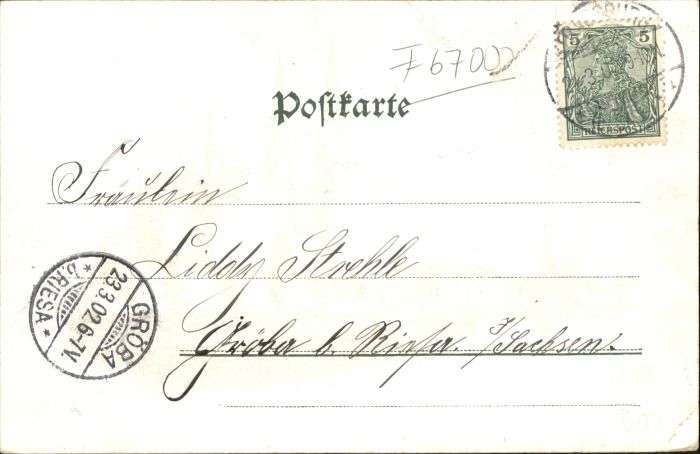 F 6700
5 5
REICHSPOST
Postkarte
Fräulein
Liddy Strehle
Gröba b. Riesa. i/Sachsen.
GRÖBA
23.3.02.6-7V.
* b. RIESA *